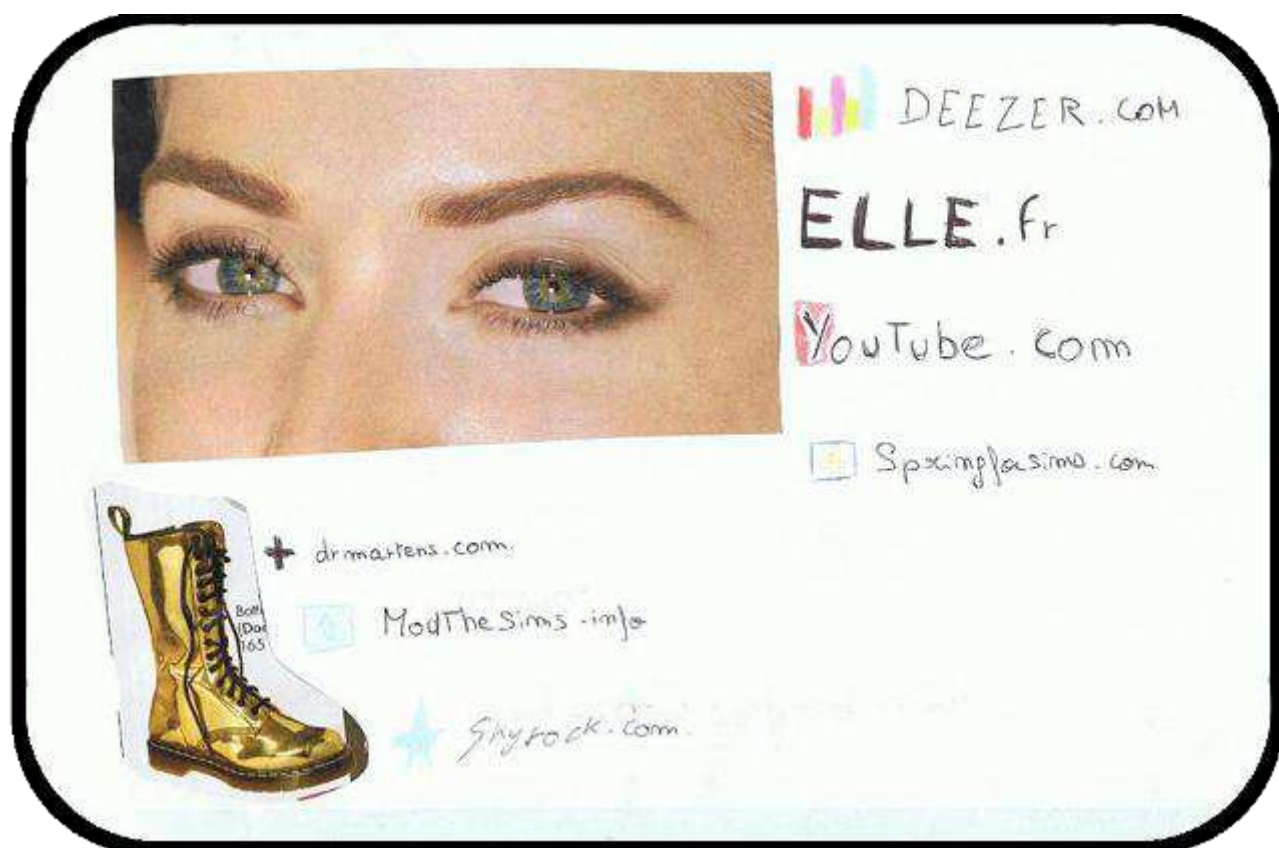 DEEZER.COM
ELLE.fr
YouTube.com
Springfasims.com
+ drmartens.com.
Bott
(Doc
165
ModTheSims.info
Skyrock.com.